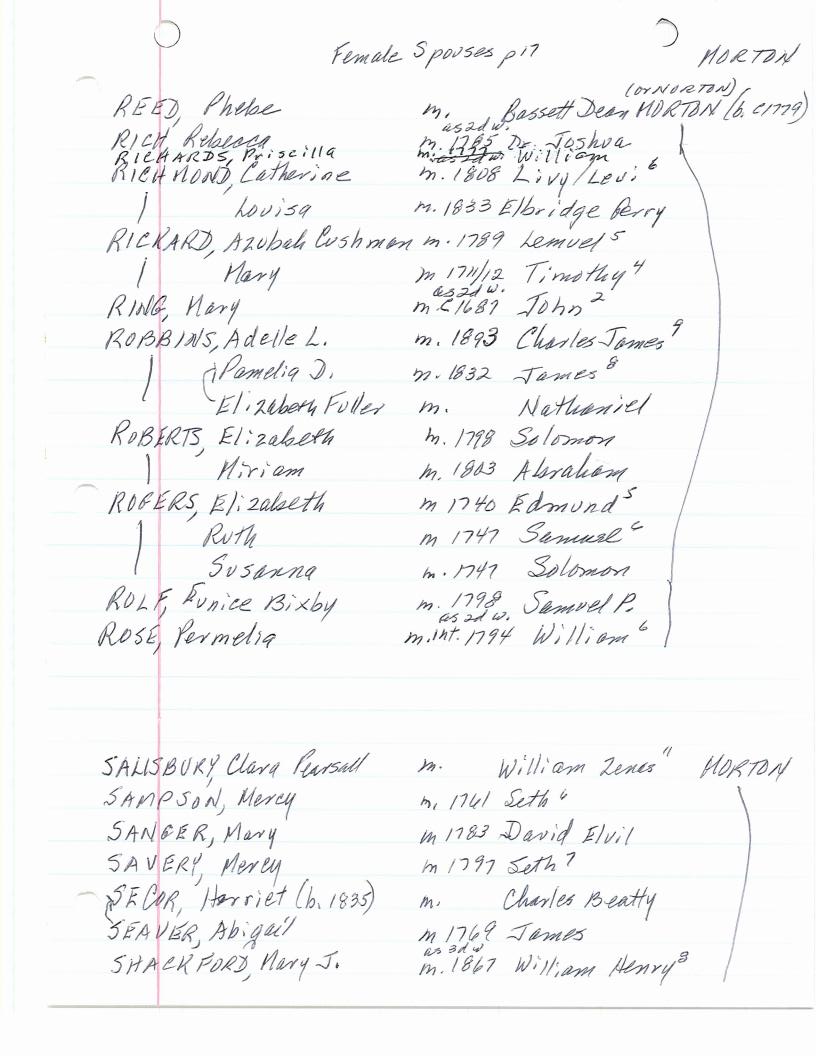 Female Spouses p17 MORTON
(or NORTON)
REED, Phebe m. Bassett Dean MORTON (b. c1779)
as 2d w.
RICH Rebecca m. 1785 Dr. Joshua
RICHARDS, Priscilla m. William
RICHMOND, Catherine m. 1808 Livy/Levi 6
Louisa m. 1833 Elbridge Gerry
RICKARD, Azubah Cushman m. 1789 Lemuel 5
Mary m 1711/12 Timothy 4
as 2d w.
RING, Mary m. c1687 John 2
ROBBINS, Adelle L. m. 1893 Charles James 9
Pamelia D. m. 1832 James 8
Elizabeth Fuller m. Nathaniel
ROBERTS, Elizabeth m. 1798 Solomon
Miriam m. 1803 Abraham
ROGERS, Elizabeth m 1740 Edmund 5
Ruth m 1747 Samuel 6
Susanna m. 1747 Solomon
ROLF, Eunice Bixby m. 1798 Samuel P.
as 2d w.
ROSE, Permelia m.int. 1794 William 6
SALISBURY, Clara Pearsall m. William Zenas 11 MORTON
SAMPSON, Mercy m, 1761 Seth 6
SANGER, Mary m 1783 David Elvil
SAVERY, Mercy m 1797 Seth 7
SECOR, Harriet (b. 1835) m. Charles Beatty
SEAVER, Abigail m 1769 James
as 3d w
SHACKFORD, Mary J. m. 1867 William Henry 8